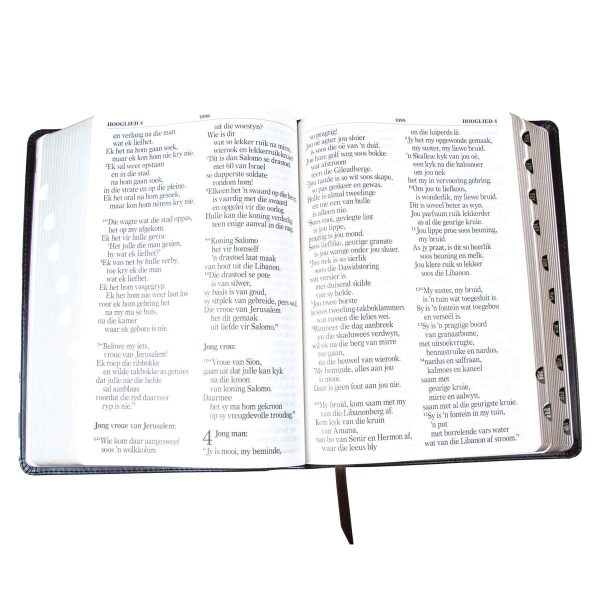 HOOGLIED 4
1098
en verlang na die man
wat ek liefhet.
Ek het na hom gaan soek,
maar ek kon hom nie kry nie.
²Ek sal weer opstaan
en in die stad
na hom gaan soek,
in die strate en op die pleine.
Ek het oral na hom gesoek,
maar ek kon hom nie kry nie.
³Die wagte wat die stad oppas,
het op my afgekom.
Ek het vir hulle gevra:
“Het julle die man gesien,
hy wat ek liefhet?”
⁴Ek was net by hulle verby,
toe kry ek die man
wat ek liefhet.
Ek het hom vasgegryp.
Ek het hom nie weer laat los
voor ek hom gebring het
na my ma se huis,
na die kamer
waar ek gebore is nie.
⁵Belowe my iets,
vroue van Jerusalem!
Ek roep die ribbokke
en wilde takbokke as getuies
dat julle nie die liefde
sal aanblaas
voordat die tyd daarvoor
ryp is nie.”
Jong vroue van Jerusalem:
⁶“Wie kom daar aangesweef
soos 'n wolkkolom
uit die woestyn?
Wie is dit
wat so lekker ruik na mirre,
wierook en lekkerruikkruide?
⁷Dit is dan Salomo se draestoel
met 60 van Israel
se dapperste soldate
rondom hom!
⁸Elkeen het 'n swaard op die heup
is vaardig met die swaard
en opgelei vir die oorlog.
Hulle kan die koning verdedig
teen enige aanval in die nag.
⁹Koning Salomo
het vir homself
'n draestoel laat maak
van hout uit die Libanon.
¹⁰Die draestoel se pote
is van silwer,
sy basis is van goud,
sy sitplek van gebreide, pers wol.
Die vroue van Jerusalem
het dit gemaak
uit liefde vir Salomo.”
Jong vrou:
¹¹“Vroue van Sion,
gaan uit dat julle kan kyk
na die kroon
van koning Salomo.
Daarmee
het sy ma hom gekroon
op sy vreugdevolle troudag.”
4 Jong man:
“Jy is mooi, my beminde,
1099
HOOGLIED 4
so pragtig!
Jou oë agter jou sluier
is soos die oë van 'n duif.
Jou hare golf weg soos bokke
wat afstroom
teen die Gileadberge.
²Jou tande is so wit soos skape,
so pas geskeer en gewas.
Hulle is almal tweelinge
en nie een van hulle
is alleen nie.
³Soos rooi, gevlegte lint
is jou lippe,
pragtig is jou mond.
Soos lieflike, geurige granate
is jou wange onder jou sluier.
⁴Jou nek is so sierlik
soos die Dawidstoring
wat versier is
met duisend skilde
van sy helde.
⁵Jou twee borste
is soos tweeling-takboklammers
wat tussen die lelies wei.
⁶Wanneer die dag aanbreek
en die skaduwees verdwyn,
wil ek na die berg van mirre
toe gaan,
na die heuwel van wierook.
⁷My beminde, alles aan jou
is mooi.
Daar is geen fout aan jou nie.
⁸My bruid, kom saam met my
van die Libanonberg af.
Kom kyk van die kruin
van Amana,
van bo van Senir en Hermon af,
waar die leeus bly
en die luiperds lê.
⁹Jy het my opgewonde gemaak,
my suster, my liewe bruid.
'n Skaflese kyk van jou oë,
een kyk na die halssnoer
om jou nek
het my in vervoering gebring.
¹⁰Om jou te liefkoos,
is wonderlik, my liewe bruid.
Dit is soveel beter as wyn.
Jou parfuum ruik lekkerder
as al die geurige kruie.
¹¹Jou lippe proe soos heuning,
my bruid.
As jy praat, is dit so heerlik
soos heuning en melk.
Jou klere ruik so lekker
soos die Libanon.
¹²“My suster, my bruid,
is 'n tuin wat toegesluit is.
Sy is 'n fontein wat toegebou
en verseël is.
¹³Sy is 'n pragtige boord
van granaatbome,
met uitsoekvrugte,
hennastruike en nardus,
¹⁴nardus en saffraan,
kalmoes en kaneel
saam met
geurige kruie,
mirre en aalwyn,
saam met al die geurigste kruie.
¹⁵Sy is 'n fontein in my tuin,
'n put
met borrelende vars water
wat van die Libanon af stroom.”